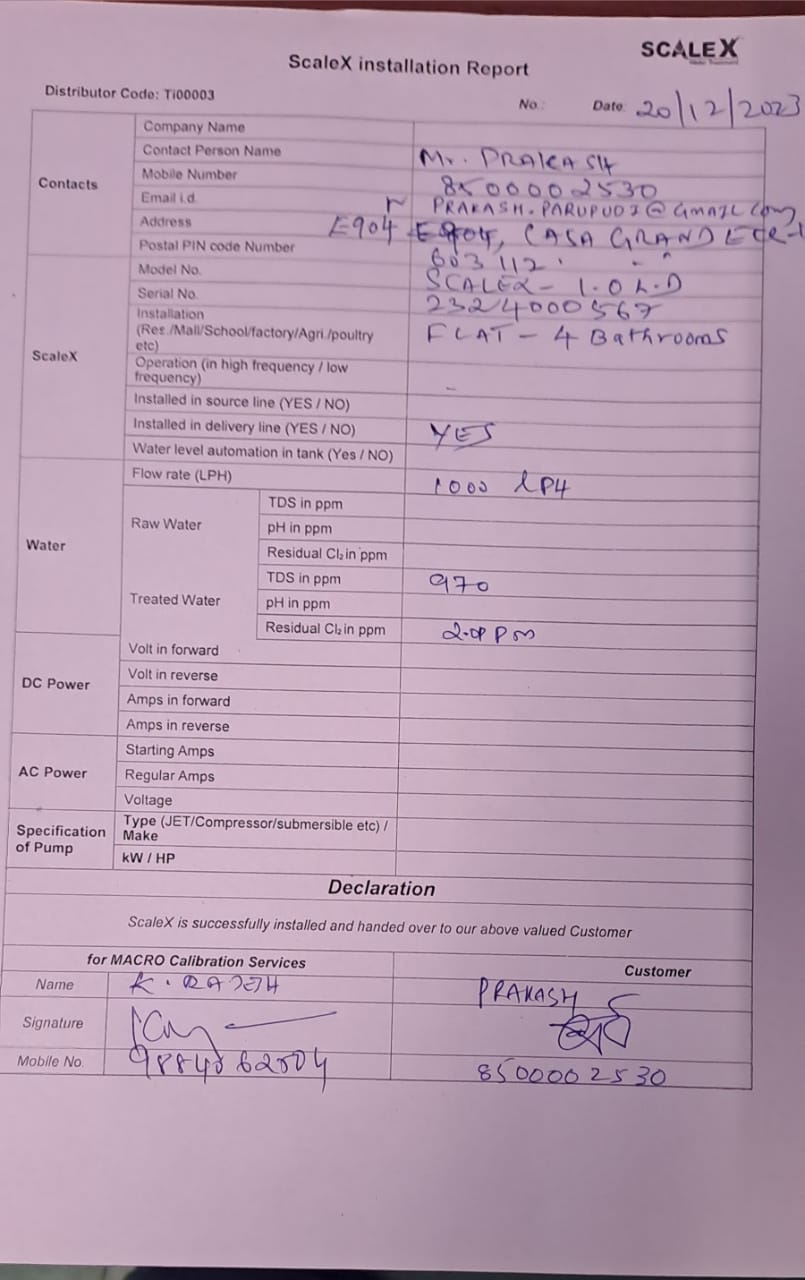 SCALEX
ScaleX installation Report
Distributor Code: Ti00003
No.: Date: 20/12/2023
Contacts
Company Name
Contact Person Name Mr. PRAKASH
Mobile Number 8500002530
Email i.d. PRAKASH.PARUPUDI@GMAIL.COM
Address E904, CASA GRANDE
Postal PIN code Number 603112
ScaleX
Model No. SCALEX - 1.0 L.D
Serial No. 2324000567
Installation
(Res./Mall/School/factory/Agri./poultry
etc) FLAT - 4 Bathrooms
Operation (in high frequency / low
frequency) -
Installed in source line (YES / NO)
Installed in delivery line (YES / NO) YES
Water level automation in tank (Yes / NO)
Water
Flow rate (LPH) 1000 LPH
Raw Water
TDS in ppm
pH in ppm
Residual Cl2 in ppm
Treated Water
TDS in ppm 970
pH in ppm
Residual Cl2 in ppm
DC Power
Volt in forward
Volt in reverse
Amps in forward
Amps in reverse
AC Power
Starting Amps
Regular Amps
Voltage
Specification
of Pump
Type (JET/Compressor/submersible etc) /
Make
kW / HP
Declaration
ScaleX is successfully installed and handed over to our above valued Customer
for MACRO Calibration Services Customer
Name K. RAJESH PRAKASH
Signature
Mobile No. 8500002530